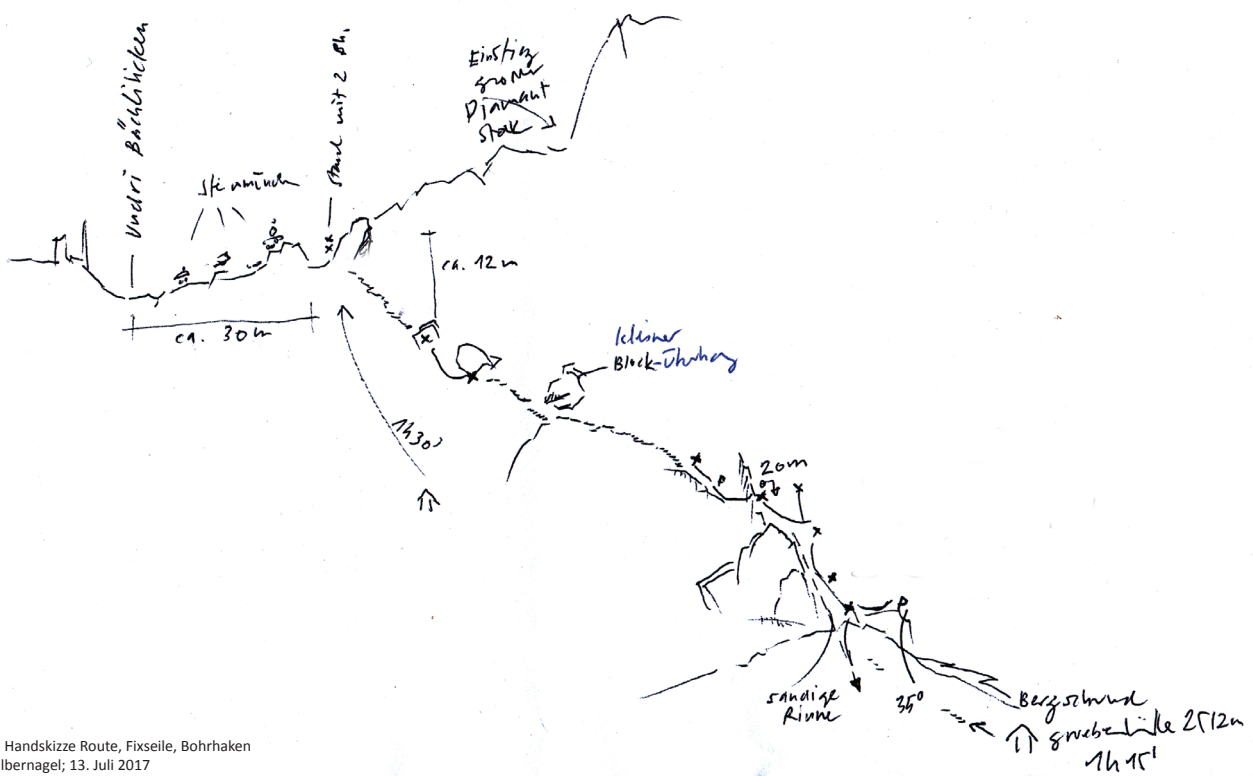 Undri Bächlilicken
Stand mit 2 Bh.
Einstieg
grosser
Diamant
stock
Steinmandli
ca. 12 m
ca. 30 m
kleiner
Block-Überhang
1h30'
20m
sandige
Rinne
35°
Bergschrund
gruebenhütte 2512m
1h 15'
Handskizze Route, Fixseile, Bohrhaken
lbernagel; 13. Juli 2017